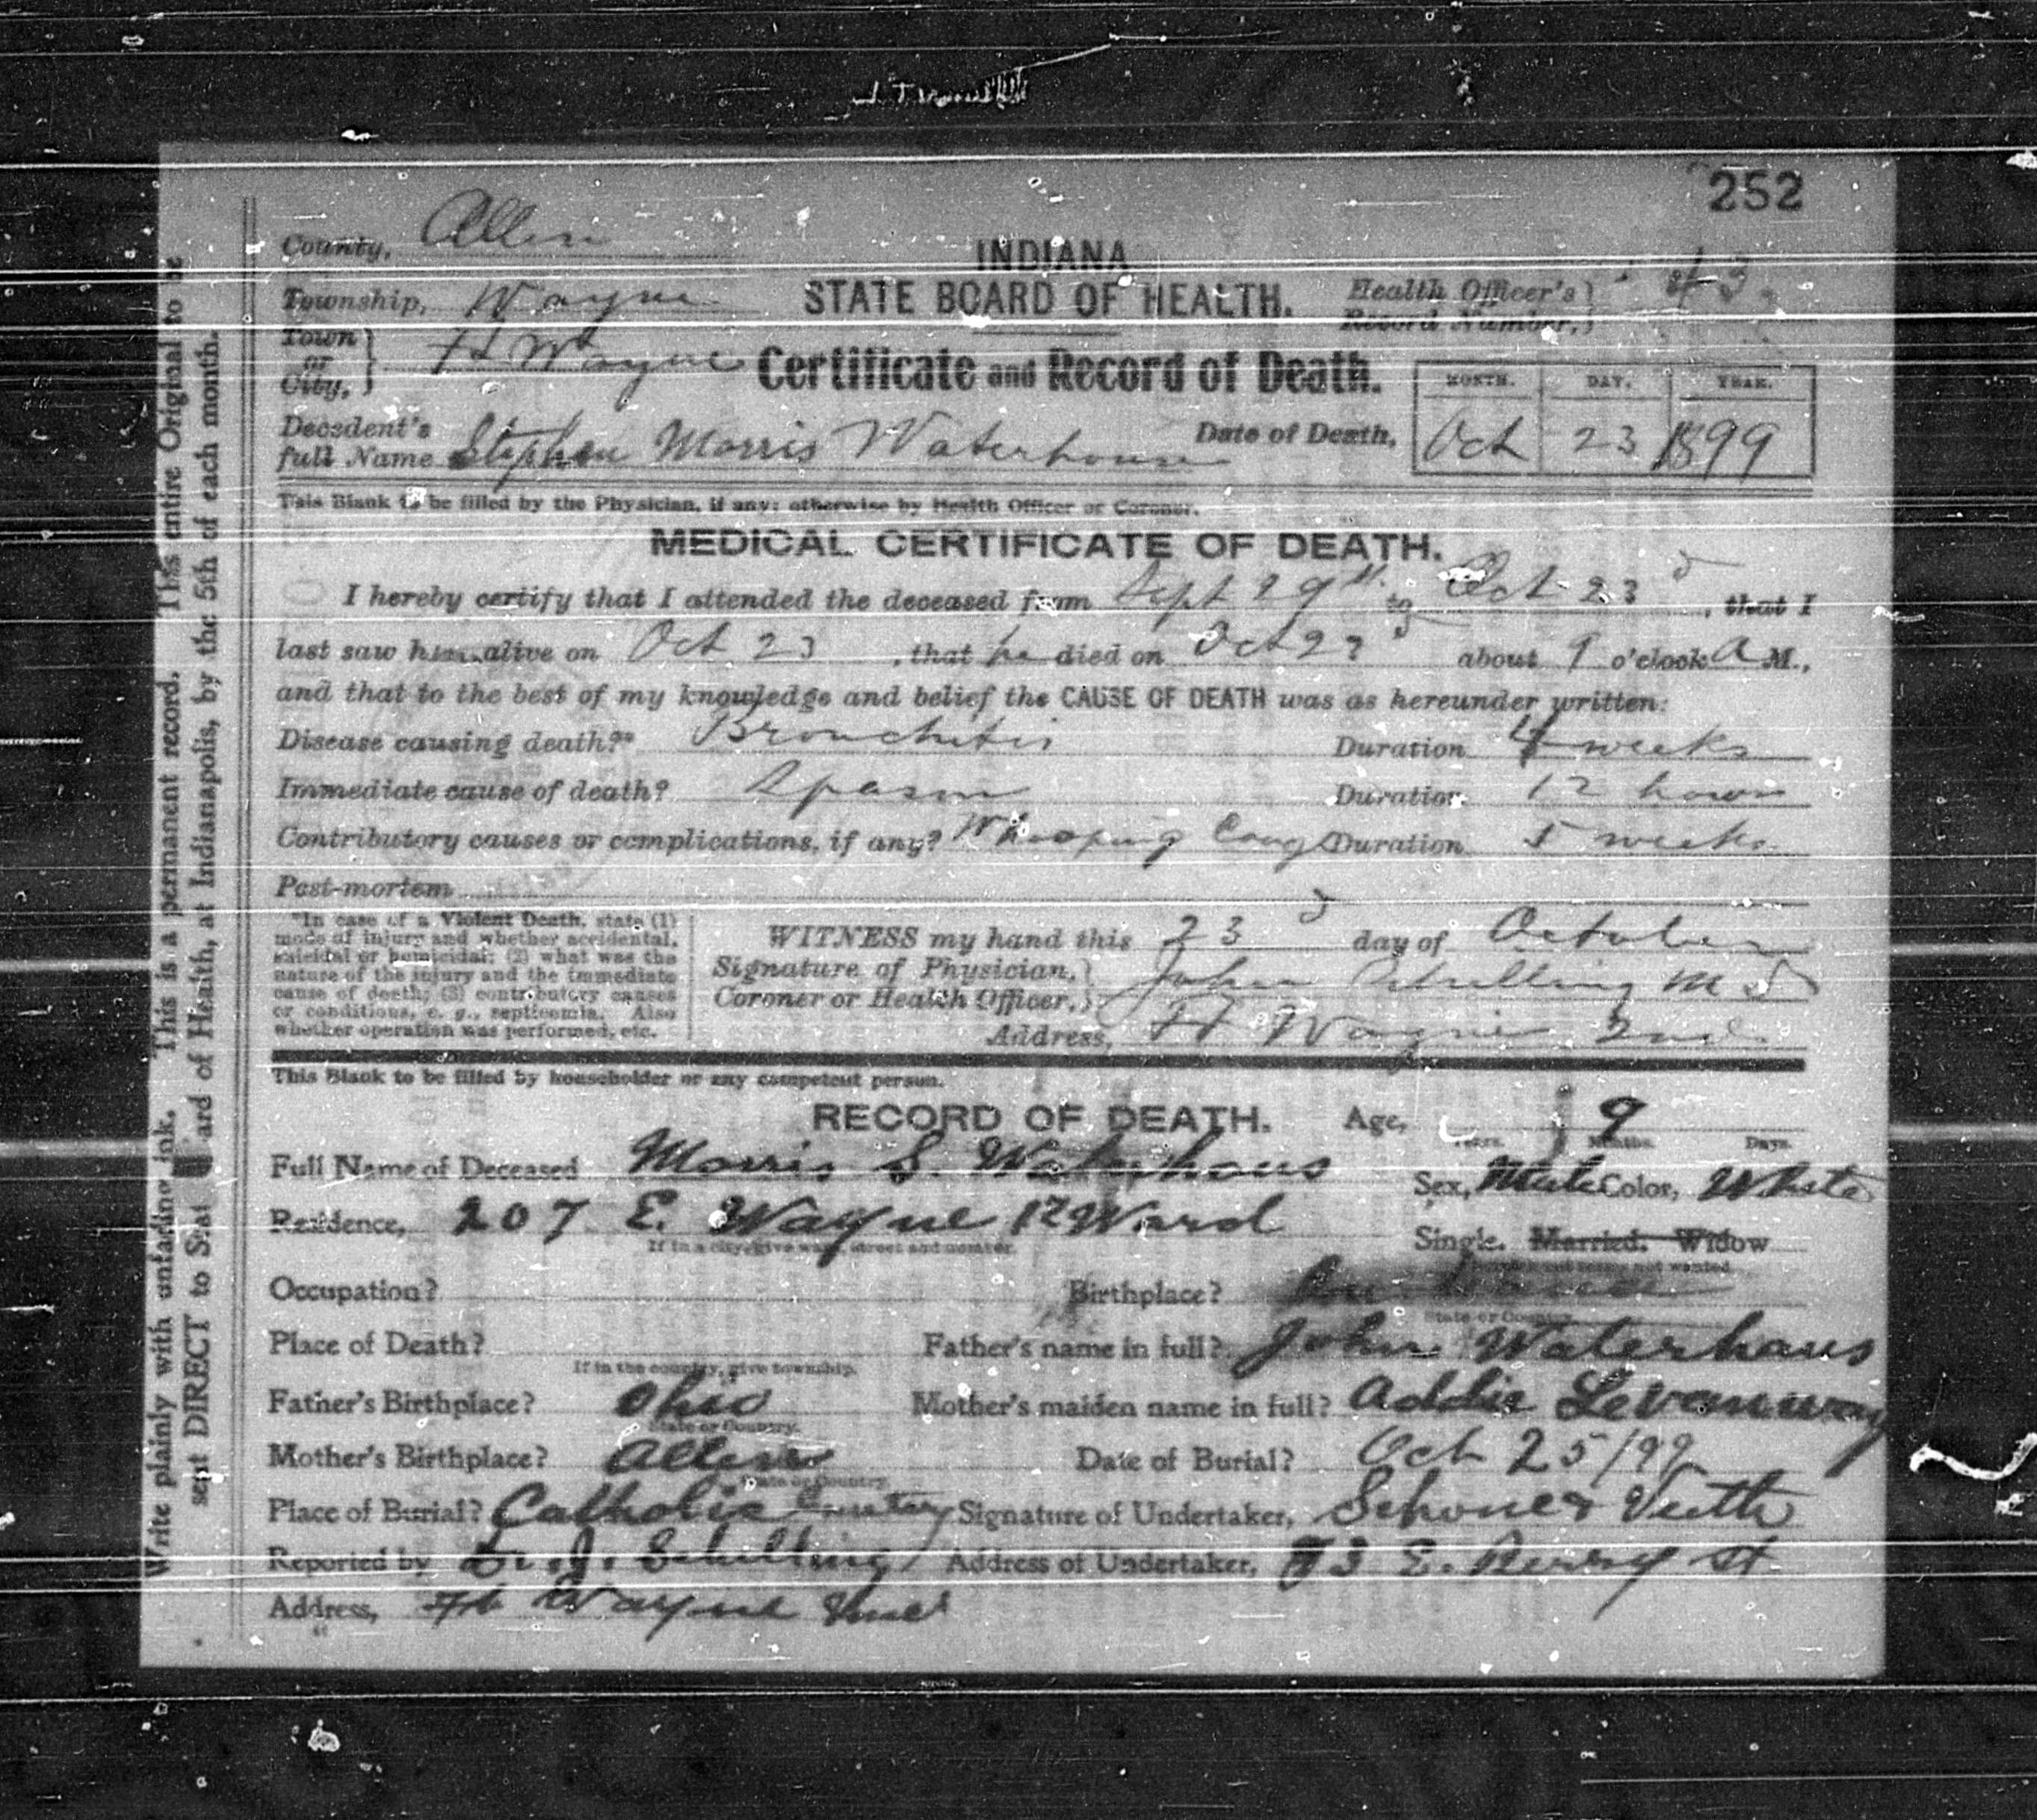 252
County, Allen
INDIANA
Township, Wayne
STATE BOARD OF HEALTH.
Health Officer's Record Number, 43
Town or City, Ft Wayne
Certificate and Record of Death.
MONTH. DAY. YEAR.
Decedent's full Name Stephen Morris Waterhouse Date of Death, Oct 23 1899
This Blank to be filled by the Physician, if any; otherwise by Health Officer or Coroner.
MEDICAL CERTIFICATE OF DEATH.
I hereby certify that I attended the deceased from Sept 29th to Oct 23d, that I
last saw him alive on Oct 23, that he died on Oct 23d about 9 o'clock A M.,
and that to the best of my knowledge and belief the CAUSE OF DEATH was as hereunder written:
Disease causing death?* Bronchitis Duration 4 weeks
Immediate cause of death? Spasm Duration 12 hours
Contributory causes or complications, if any? Whooping Cough Duration 5 weeks
Post-mortem
*In case of a Violent Death, state (1)
mode of injury and whether accidental,
suicidal or homicidal; (2) what was the
nature of the injury and the immediate
cause of death; (3) contributory causes
or conditions, e. g., septicemia. Also
whether operation was performed, etc.
WITNESS my hand this 23d day of October
Signature of Physician, Coroner or Health Officer, John Schilling M D
Address, Ft Wayne Ind.
This Blank to be filled by householder or any competent person.
RECORD OF DEATH. Age, 9
Years. Months. Days.
Full Name of Deceased Morris S. Waterhaus
Sex, Male Color, White
Residence, 207 E. Wayne 12 Ward
If in a city, give ward, street and number.
Single. Married. Widow
not wanted.
Occupation? Birthplace?
State or Country.
Place of Death? Father's name in full? John Waterhaus
If in the country, give township.
Father's Birthplace? Ohio Mother's maiden name in full? Addie Levanway
State or Country.
Mother's Birthplace? Allen Date of Burial? Oct 25/99
State or Country.
Place of Burial? Catholic Cemetery Signature of Undertaker, Schone & Veith
Reported by Dr. J. Schilling Address of Undertaker, 73 E. Berry St
Address, Ft Wayne Ind
Write plainly with unfading ink. This is a permanent record. This entire Original to be
sent DIRECT to State Board of Health, at Indianapolis, by the 5th of each month.